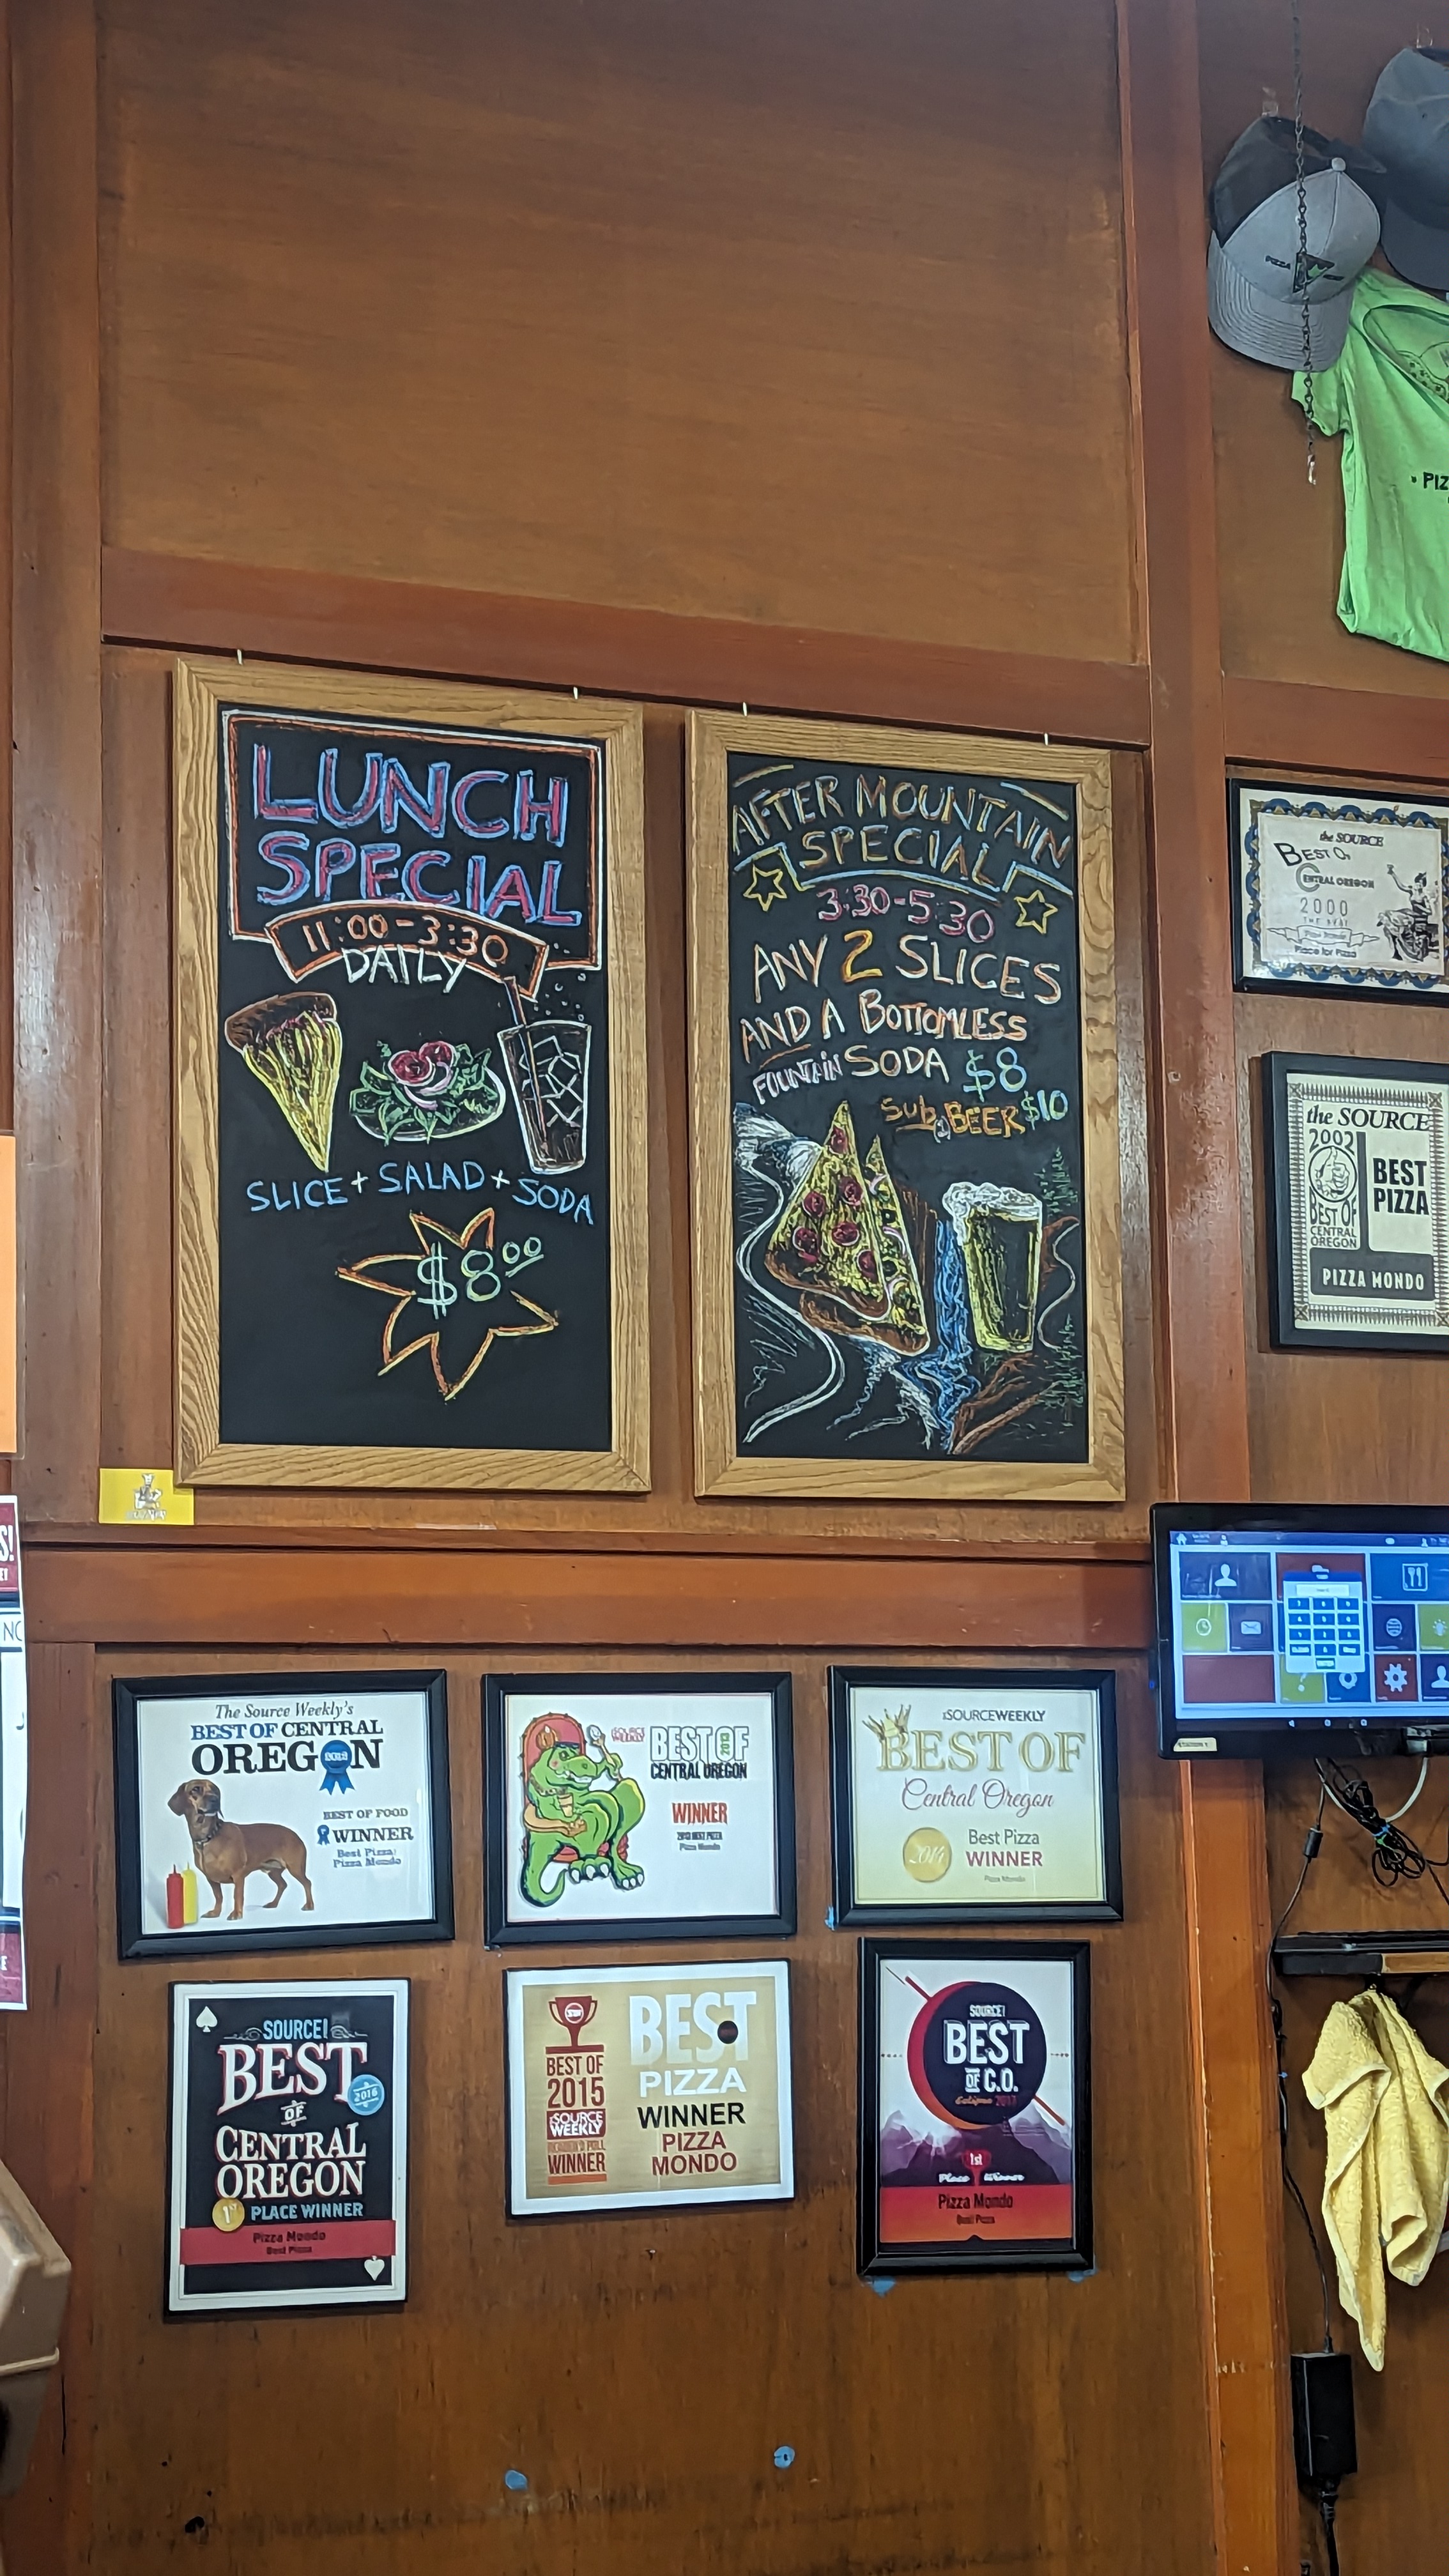 LUNCH
SPECIAL
11:00-3:30
DAILY
SLICE + SALAD + SODA
$8.00
AFTER MOUNTAIN
SPECIAL
3:30-5:30
ANY 2 SLICES
AND A BOTTOMLESS
FOUNTAIN SODA $8
SUB BEER $10
PIZZA
PIZ
the SOURCE
BEST OF
CENTRAL OREGON
2000
Place for Pizza
the SOURCE
2002
BEST OF
CENTRAL
OREGON
BEST
PIZZA
PIZZA MONDO
STATION 1
The Source Weekly's
BEST OF CENTRAL
OREGON
2012
BEST OF FOOD
WINNER
Best Pizza:
Pizza Mondo
SOURCE
WEEKLY
BEST OF
2013
CENTRAL OREGON
WINNER
2013 BEST PIZZA
Pizza Mondo
SOURCEWEEKLY
BEST OF
Central Oregon
2014
Best Pizza
WINNER
Pizza Mondo
SOURCE!
BEST
2016
OF
CENTRAL
OREGON
1st PLACE WINNER
Pizza Mondo
Best Pizza
BEST OF
2015
SOURCE
WEEKLY
READER'S POLL
WINNER
BEST
PIZZA
WINNER
PIZZA
MONDO
SOURCE!
BEST
OF C.O.
Eclipse 2017
1st
Place Winner
Pizza Mondo
Best Pizza